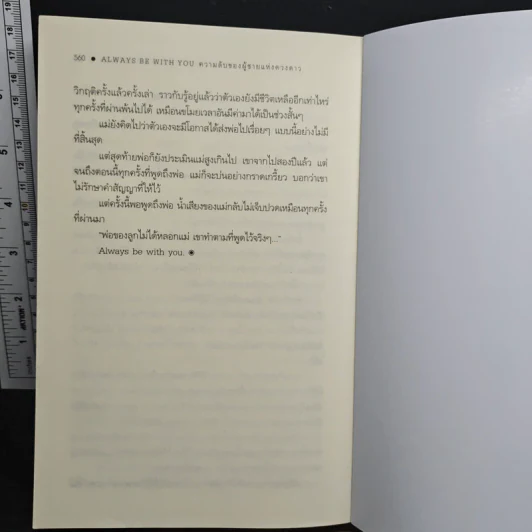 560 ● ALWAYS BE WITH YOU ความลับของผู้ชายแห่งดวงดาว
วิกฤติครั้งแล้วครั้งเล่า ราวกับรู้อยู่แล้วว่าตัวเองยังมีชีวิตเหลืออีกเท่าไหร่
ทุกครั้งที่ผ่านพ้นไปได้ เหมือนขโมยเวลาอันมีค่ามาได้เป็นช่วงสั้นๆ
แม่ยังคิดไปว่าตัวเองจะมีโอกาสได้ส่งพ่อไปเรื่อยๆ แบบนี้อย่างไม่มี
ที่สิ้นสุด
แต่สุดท้ายพ่อก็ยังประเมินแม่สูงเกินไป เขาจากไปสองปีแล้ว แต่
จนถึงตอนนี้ทุกครั้งที่พูดถึงพ่อ แม่ก็จะบ่นอย่างกราดเกรี้ยว บอกว่าเขา
ไม่รักษาคำสัญญาที่ให้ไว้
แต่ครั้งนี้พอพูดถึงพ่อ น้ำเสียงของแม่กลับไม่เจ็บปวดเหมือนทุกครั้ง
ที่ผ่านมา
"พ่อของลูกไม่ได้หลอกแม่ เขาทำตามที่พูดไว้จริงๆ..."
Always be with you. ◉